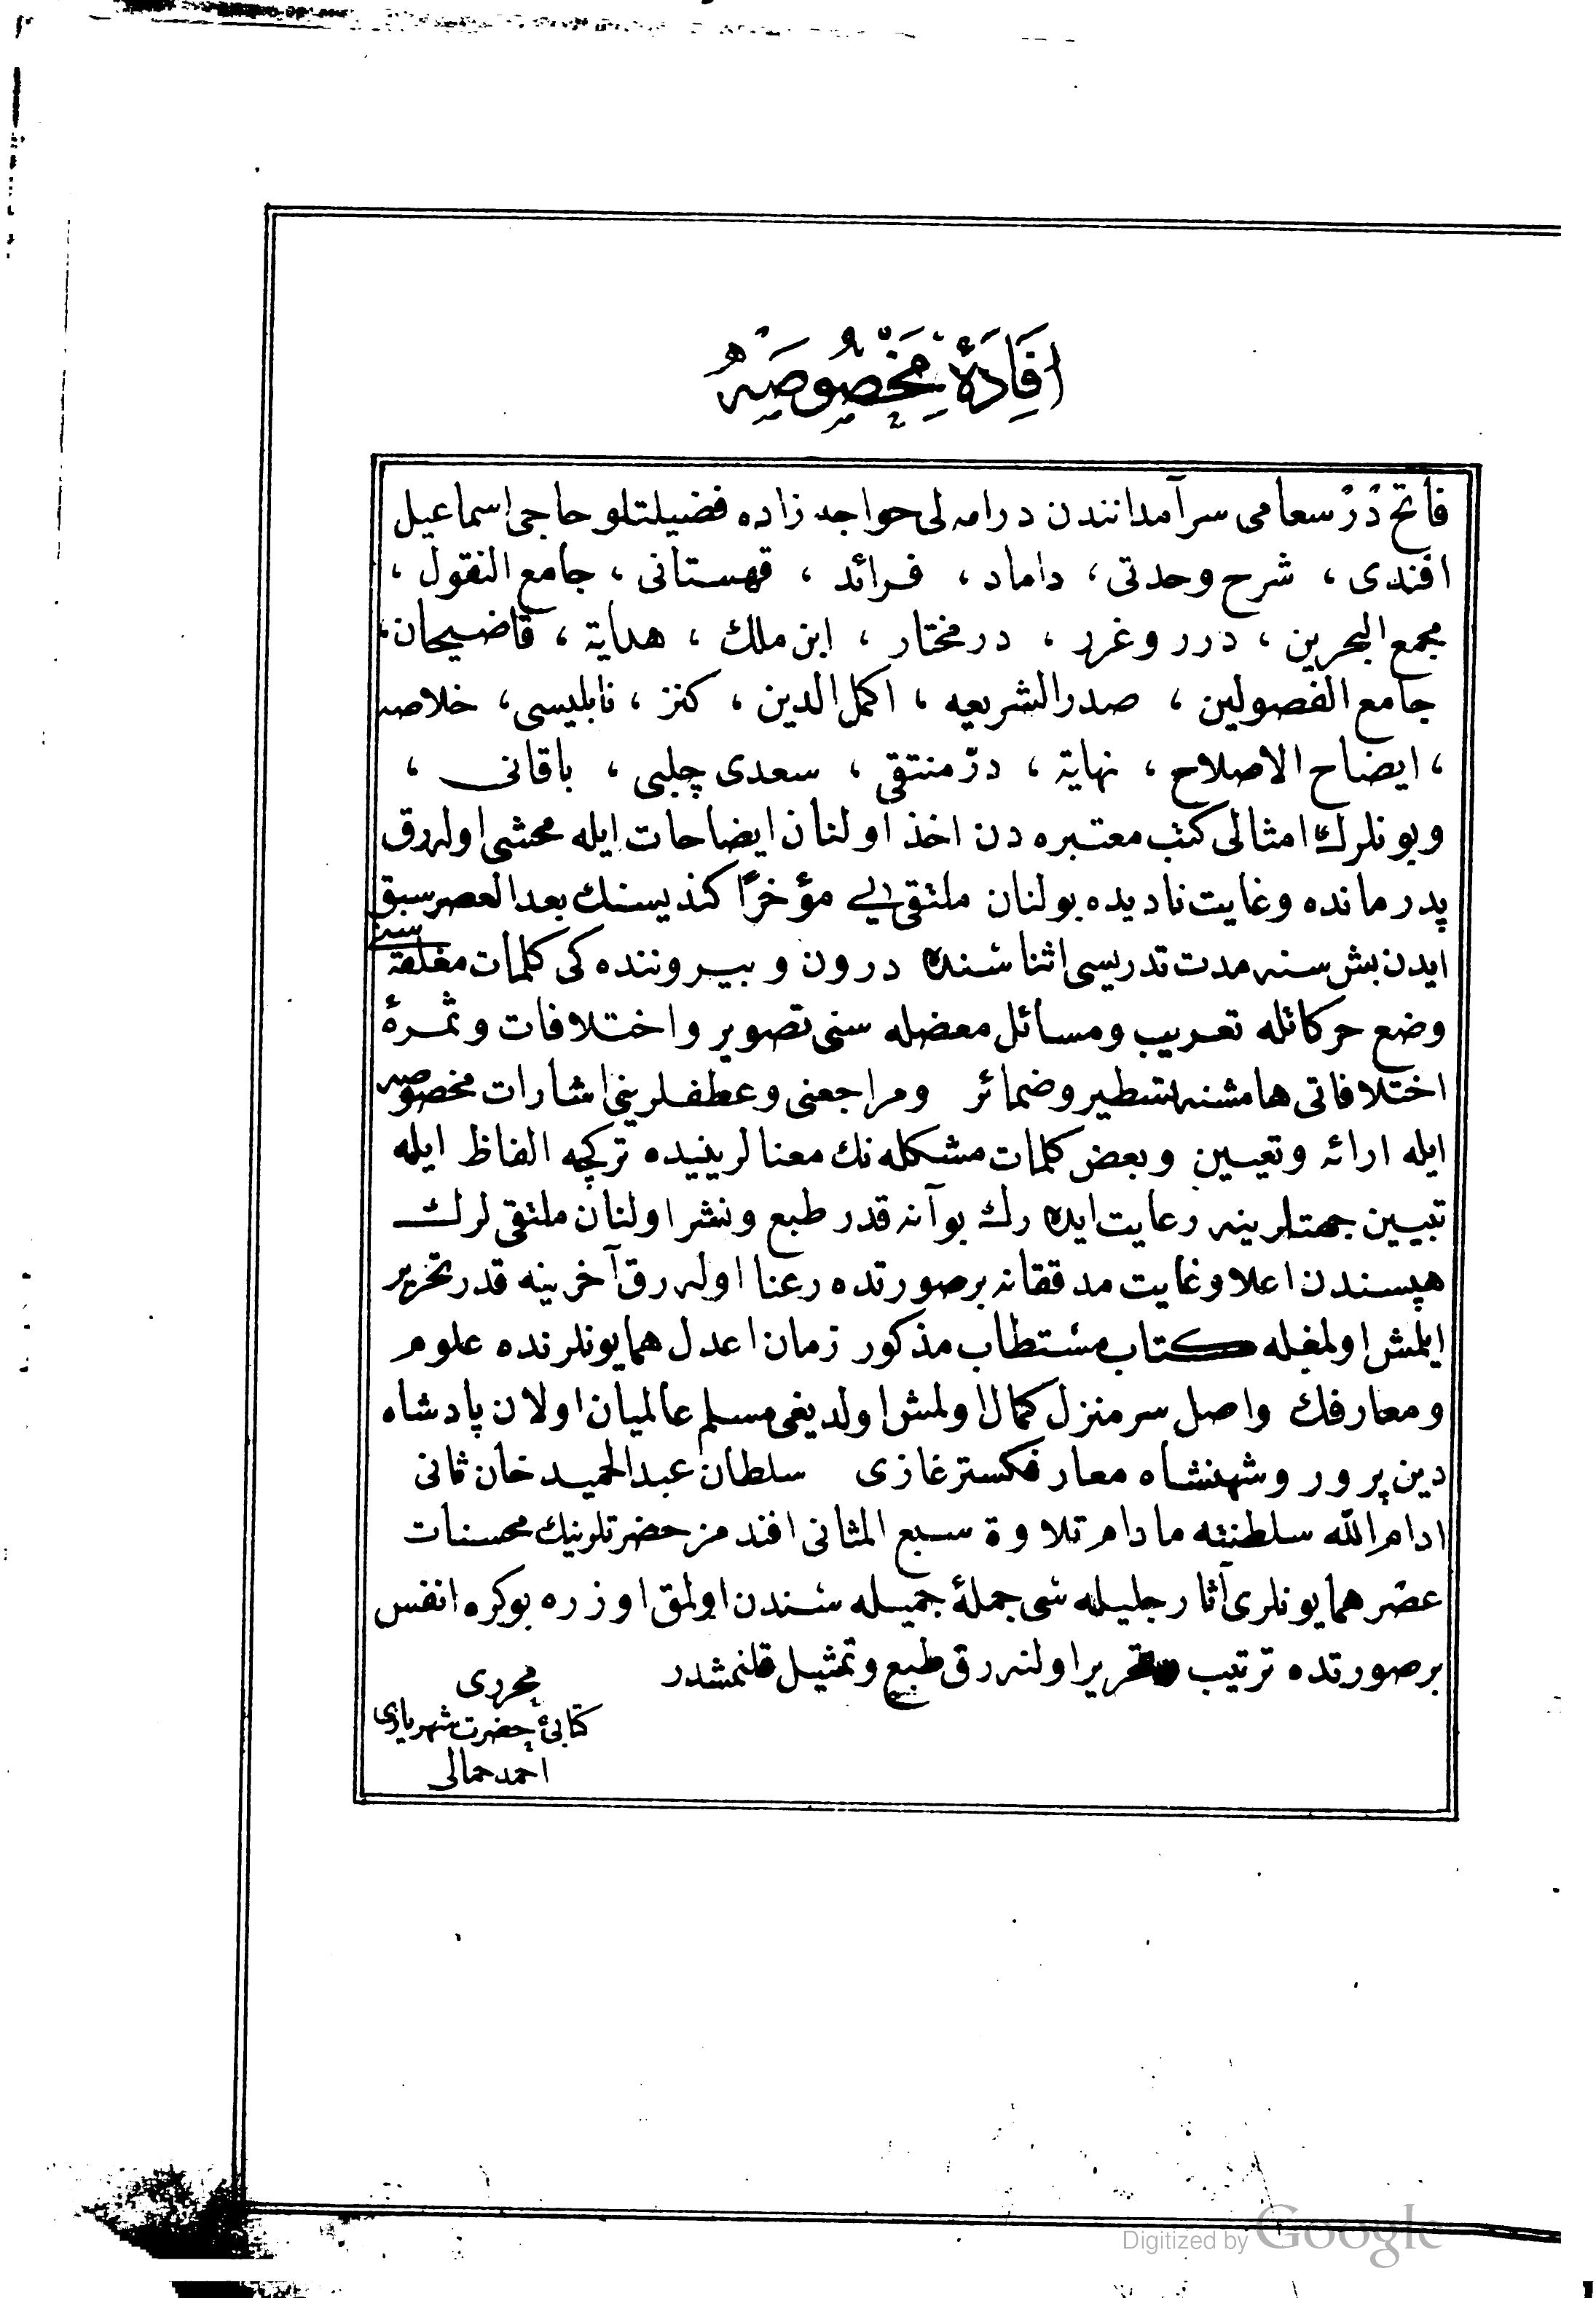 اِفَادَۀ مَخْصُوصَه
فاتح دُرْسعامى سرآمداننندن درامه لى حواجه زاده فضيلتلو حاجى اسماعيل
افندى ، شرح وحدتى ، داماد ، فرائد ، قهستانى ، جامع النقول ،
مجمع البحرين ، درر وغرر ، درمختار ، ابن ملك ، هداية ، قاضيحان ،
جامع الفصولين ، صدرالشريعه ، اكمل الدين ، كنز ، نابليسى ، خلاصه
، ايضاح الاصلاح ، نهاية ، درّمنتقى ، سعدى چلبى ، باقانى ،
وبونلرك امثالى كتب معتبره دن اخذ اولنان ايضاحات ايله محشى اوله رق
پدرمانده وغايت ناديده بولنان ملتقى يى مؤخرًا كنديسنك بعدالعصر سبق
ايدن بش سنه مدت تدريسى اثنا سنده درون و بيروننده كى كلمات مغلقه سنى
وضع حركاتله تعريب ومسائل معضله سنى تصوير واختلافات وثمرۀ
اختلافاتى هامشنه تسطير وضمائر ومراجعنى وعطفلرينى اشارات مخصوصه
ايله ارائه وتعيين وبعض كلمات مشكله نك معنالرينيده تركچه الفاظ ايله
تبيين جهتلرينه رعايت ايده رك بوآنه قدر طبع ونشر اولنان ملتقى لرك
هپسندن اعلا وغايت مدققانه برصورتده رعنا اوله رق آخرينه قدر تحرير
ايلمش اولمغله كتاب مستطاب مذكور زمان اعدل همايونلرنده علوم
ومعارفك واصل سرمنزل كمال اولمش اولديغى مسلم عالميان اولان پادشاه
دين پرور وشهنشاه معارفكستر غازى سلطان عبدالحميد خان ثانى
ادام الله سلطنته مادام تلاوة سبع المثانى افندمز حضرتلرينك محسنات
عصر همايونلرى آثار جليله سى جملۀ جميله سندن اولمق اوزره بوكره انفس
برصورتده ترتيب وتحرير اولنه رق طبع وتمثيل قلنمشدر
محررى
كتابئ حضرت شهريارى
احمد حمالى
Digitized by Google